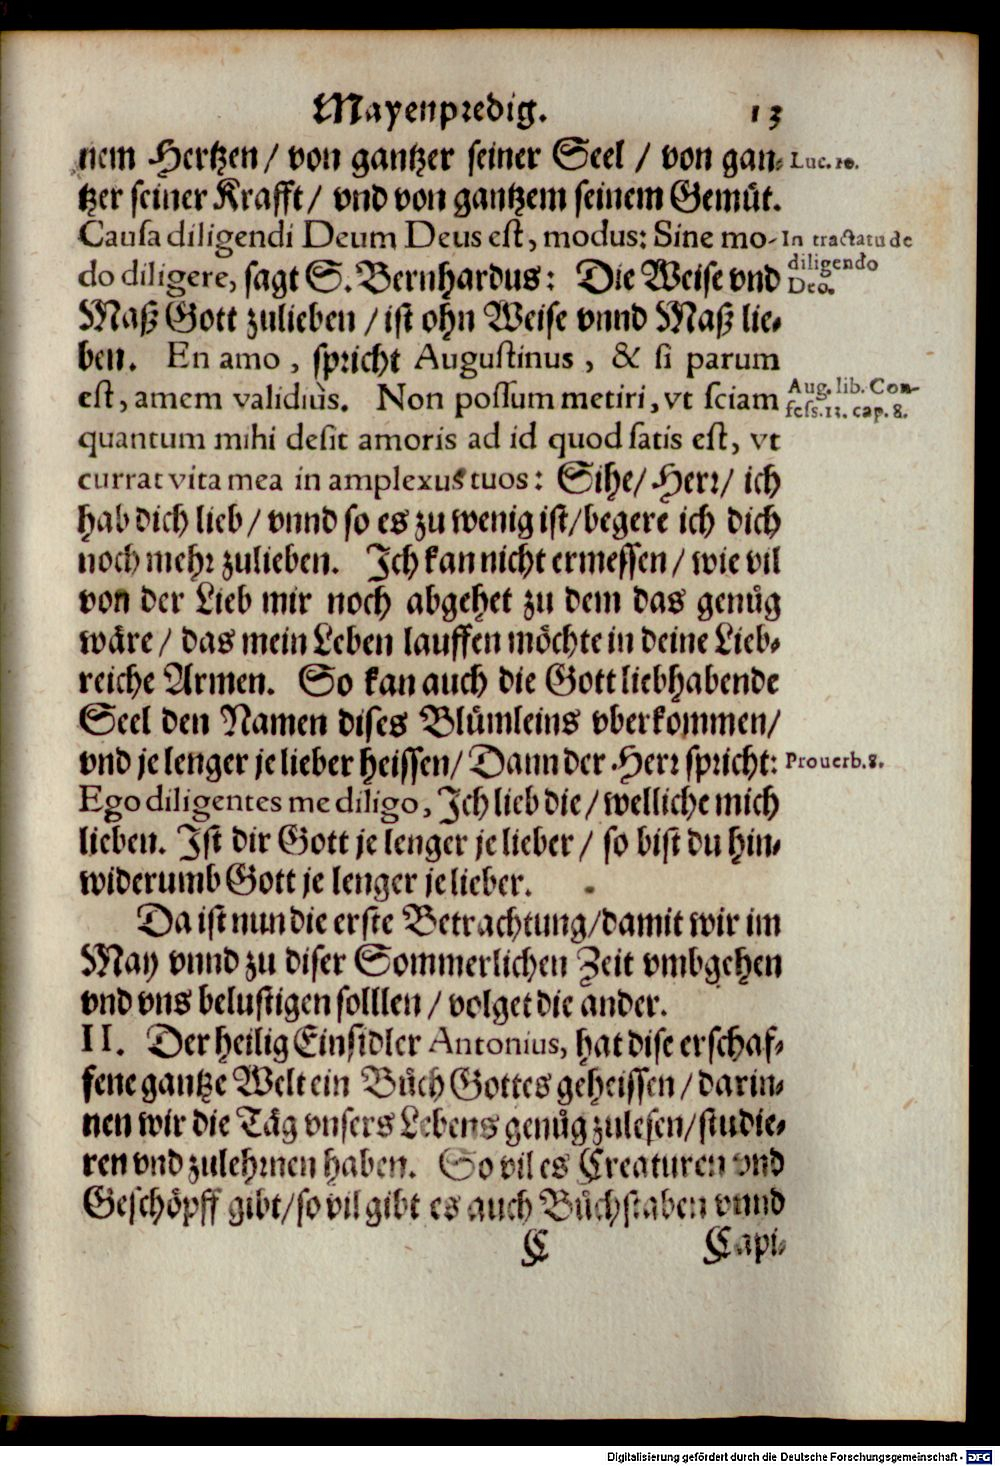 Mayenpredig. 13
nem Hertzen / von gantzer seiner Seel / von gan- Luc. 10.
tzer seiner Krafft / vnd von gantzem seinem Gemüt.
Causa diligendi Deum Deus est, modus: Sine mo- In tractatu de
do diligere, sagt S. Bernhardus: Die Weise vnd diligendo
Deo.
Maß Gott zulieben / ist ohn Weise vnnd Maß lie-
ben. En amo, spricht Augustinus, & si parum
est, amem validiùs. Non possum metiri, vt sciam Aug. lib. Con-
fess. 13. cap. 8.
quantum mihi desit amoris ad id quod satis est, vt
currat vita mea in amplexus tuos: Sihe / Herr / ich
hab dich lieb / vnnd so es zu wenig ist / begere ich dich
noch mehr zulieben. Ich kan nicht ermessen / wie vil
von der Lieb mir noch abgehet zu dem das genůg
wäre / das mein Leben lauffen möchte in deine Lieb-
reiche Armen. So kan auch die Gott liebhabende
Seel den Namen dises Blůmleins vberkommen /
vnd je lenger je lieber heissen / Dann der Herr spricht: Prouerb. 8.
Ego diligentes me diligo, Ich lieb die / welliche mich
lieben. Ist dir Gott je lenger je lieber / so bist du hin-
widerumb Gott je lenger je lieber.
Da ist nun die erste Betrachtung / damit wir im
May vnnd zu diser Sommerlichen Zeit vmbgehen
vnd vns belustigen solllen / volget die ander.
II. Der heilig Einsidler Antonius, hat dise erschaf-
fene gantze Welt ein Bůch Gottes geheissen / darin-
nen wir die Täg vnsers Lebens genůg zulesen / studie-
ren vnd zulehrnen haben. So vil es Creaturen vnd
Geschöpff gibt / so vil gibt es auch Bůchstaben vnnd
C Capi-
Digitalisierung gefördert durch die Deutsche Forschungsgemeinschaft - DFG